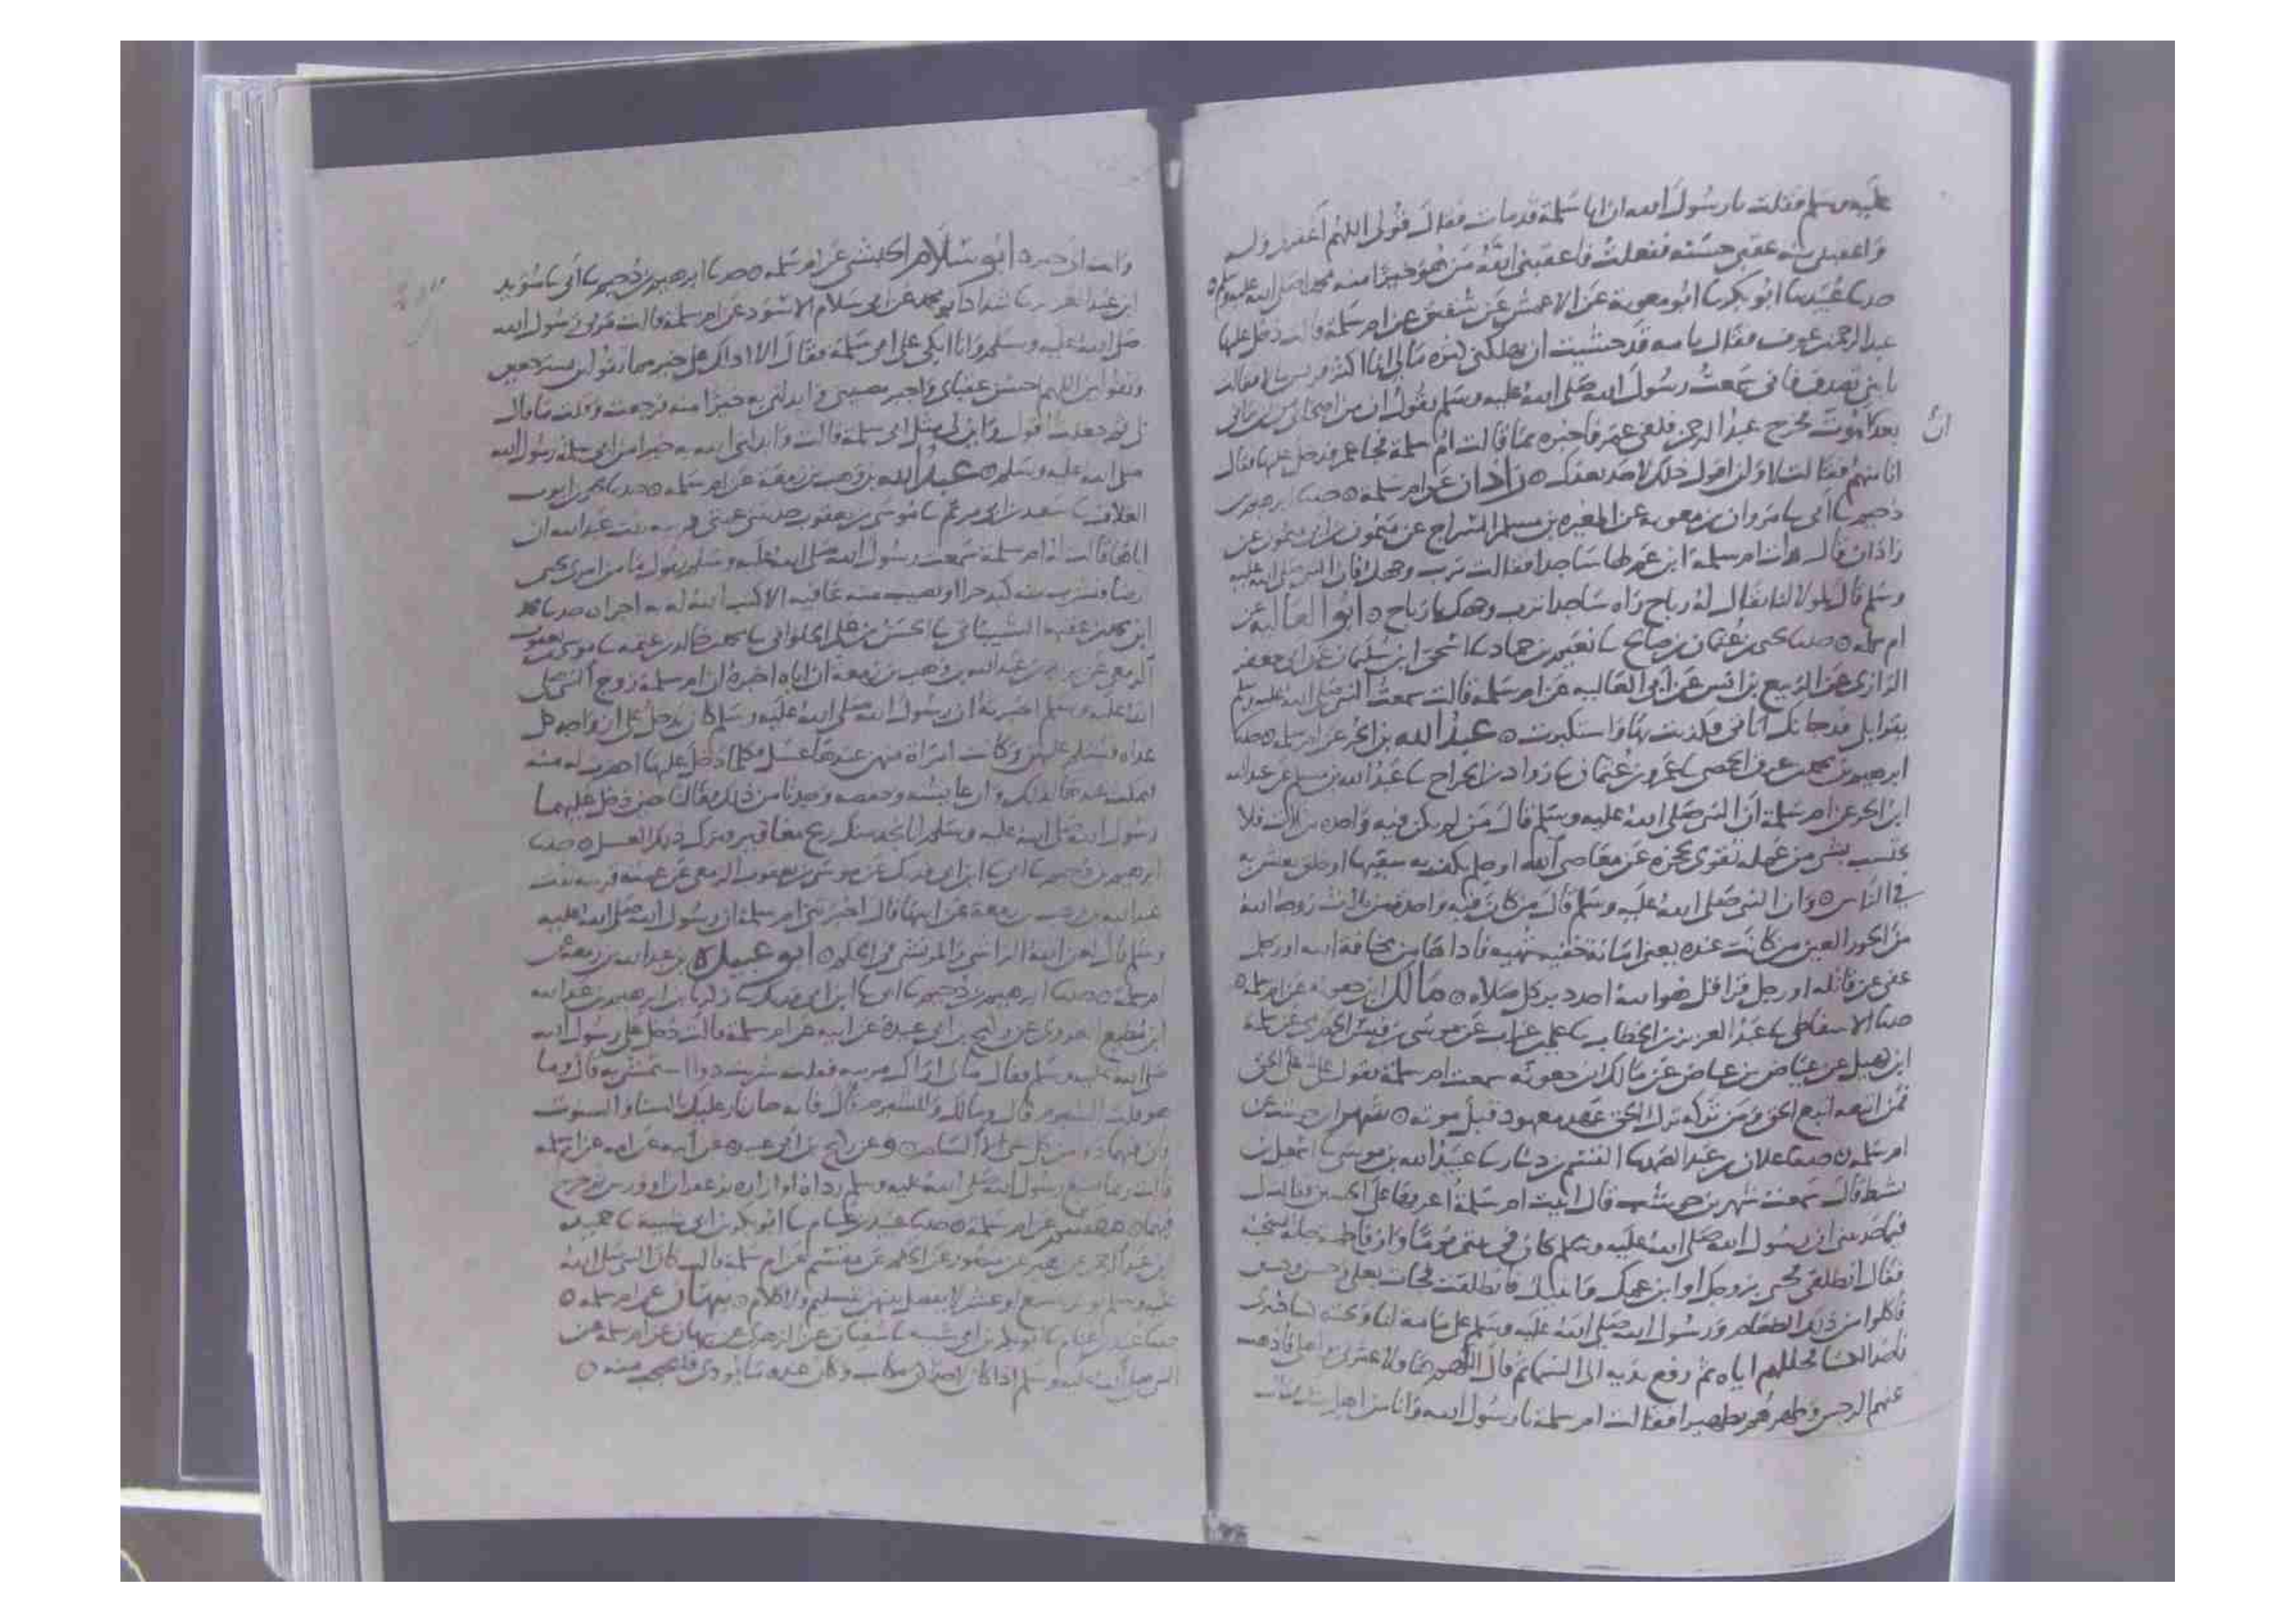 عليه وسلم فقلت يا رسول الله ان ابا سلمة قد مات فقال قولي اللهم اغفر لي وله
واعقبني منه عقبى حسنة ففعلت فاعقبني الله من هو خير منه محمدا صلى الله عليه وسلم ه
حدثنا عبيد بنا ابو بكر بنا ابو معوية عن الاعمش عن شقيق عن ام سلمة قالت دخل عليها
عبد الرحمن بن عوف فقال يا امه قد خشيت ان يهلكني كثرة مالي انا اكثر قريش مالا فقالت
يا بني تصدق فاني سمعت رسول الله صلى الله عليه وسلم يقول ان من اصحابي من لن يراني
بعد اموت فخرج عبد الرحمن فلقي عمر فاخبره بما قالت ام سلمة فجا عمر فدخل عليها فقال
ان
انا منهم فقالت لا ولن اقول ذلك لاحد بعدك ه زاذان عن ام سلمة ه حدثنا ابرهيم بن
دحيم بنا ابي بنا مروان بن معوية عن المغيره بن مسلم السراج عن ميمون بن ابي ميمون عن
زاذان قال رات ام سلمة ابن عم لها ساجدا فقالت ترب وجهك فان النبي صلى الله عليه
وسلم قال لمولا لنا يقال له رباح راه ساجدا ترب وجهك يا رباح ه ابو العالية عن
ام سلمة ه حدثنا يحيى بن عثمان بن صالح بنا نعيم بن حماد بنا اسحق ابن سليمان عن ابي جعفر
الرازي عن الربيع بن انس عن ابي العالية عن ام سلمة قالت سمعت النبي صلى الله عليه وسلم
يقرا بلى قد جاتك اياتي فكذبت بها واستكبرت ه عبد الله بن الحر عن ام سلمة ه حدثنا
ابرهيم بن محمد بن عرق الحمصي بنا عمرو بن عثمان بنا رواد بن الجراح بنا عبد الله بن مسلم عن عبد الله
ابن الحر عن ام سلمة ان النبي صلى الله عليه وسلم قال من لم يكن فيه واحدة من ثلاث فلا
يحتسب بشي من عمله تقوى يحجزه عن معاصي الله او حلم يكف به سفيها او خلق يعيش به
في الناس ه وان النبي صلى الله عليه وسلم قال من كان فيه واحدة من ثلاث زوجه الله
من الحور العين من كانت عنده يعني امانة خفية شهية فاداها من مخافة الله او رجل
عفى عن قاتله او رجل قرا قل هو الله احد دبر كل صلاه ه مالك ابن جعونه عن ام سلمة ه
حدثنا الاسفاطي بنا عبد العزيز بن الخطاب بنا علي بن غراب عن موسى بن قيس الحضرمي عن سلمة
ابن كهيل عن عياض بن عياض عن مالك ابن جعونه سمعت ام سلمة تقول علي على الحق
فمن اتبعه اتبع الحق ومن تركه ترك الحق عهد معهود قبل موته ه شهر ابن حوشب عن
ام سلمة ه حدثنا علان بن عبد الصمد بنا القسم بن دينار بنا عبيد الله بن موسى بنا اسمعيل بن
نشيط قال سمعت شهر بن حوشب قال اتيت ام سلمة اعزيها على الحسين فقالت
فيما حدثتني ان رسول الله صلى الله عليه وسلم كان في بيتي يوما وان فاطمة جاته بسخنة
فقال انطلقي فجي بزوجك او ابن عمك وابنيك فانطلقت فجات بعلي وحسن وحسين
فاكلوا من ذلك الطعام ورسول الله صلى الله عليه وسلم على منامة لنا وتحته كسا خيبري
فاخذ الكسا فجللهم اياه ثم رفع يديه الى السما ثم قال اللهم هولا عترتي واهلي فاذهب
عنهم الرجس وطهرهم تطهيرا فقالت ام سلمة يا رسول الله وانا من اهل بيتك فقال
وانت الى خير ه ابو سلام الحبشي عن ام سلمة ه حدثنا ابرهيم بن دحيم بنا ابي بنا سويد
ابن عبد العزيز بنا شداد ابو محمد عن ابي سلام الاسود عن ام سلمة قالت مر بي رسول الله
صلى الله عليه وسلم وانا ابكي على ابي سلمة فقال الا ادلك على خير مما تقولي تسترجعين
وتقولين اللهم احسن عقباي واجر مصيبتي وابدلني به خيرا منه فرجعت وقلت ما قال
لي ثم جعلت اقول واين لي مثل ابي سلمة قالت وابدلني الله به خيرا من ابي سلمة رسول الله
صلى الله عليه وسلم ه عبد الله بن وهب بن زمعة عن ام سلمة ه حدثنا يحيى بن ايوب
العلاف بنا سعيد بن ابي مريم بنا موسى بن يعقوب حدثتني عمتي قريبة بنت عبد الله ان
اباها قالت له ام سلمة سمعت رسول الله صلى الله عليه وسلم يقول ما من امرئ يحيي
ارضا فتشرب منه كبد حرا او يصيب منه عافية الا كتب الله له به اجرا ه حدثنا محمد
ابن محمد بن عقبة الشيباني بنا الحسن بن علي الحلواني بنا محمد بن خالد بن عثمة بنا موسى بن يعقوب
الزمعي عن عبد الله بن وهب بن زمعة ان اباه اخبره ان ام سلمة زوج النبي صلى
الله عليه وسلم اخبرته ان رسول الله صلى الله عليه وسلم كان يدخل على ازواجه كل
غداه فيسلم عليهن وكانت امراة منهن عندها عسل فكلما دخل عليها احضرت له منه
فيمكث عندها لذلك وان عايشة وحفصة وجدتا من ذلك فقالتا حين دخل عليهما
رسول الله صلى الله عليه وسلم انا نجد منك ريح مغافير فترك ذلك العسل ه حدثنا
ابرهيم بن دحيم بنا ابي بنا ابن ابي فديك عن موسى بن يعقوب الزمعي عن عمته قريبة بنت
عبد الله بن وهب بن زمعة عن ابيها قال اخبرتني ام سلمة ان رسول الله صلى الله عليه
وسلم قال لعن الله الراشي والمرتشي في الحكم ه ابو عبيدة بن عبد الله بن زمعة عن
ام سلمة ه حدثنا ابرهيم بن دحيم بنا ابي بنا ابن ابي فديك بنا زكريا بن ابرهيم بن عبد الله
ابن مطيع العدوي عن ركيح بن ابي عبيدة عن ابيه عن ام سلمة قالت دخل علي رسول الله
صلى الله عليه وسلم فقال ما لي اراك مرثيه فقلت شربت دوا استمشي به قال وما
هو قلت الشبرم قال وما لك وللشبرم قال فانه حار نار عليك بالسنا والسنوت
فان فيهما دوا من كل شي الا السام ه وعن ركيح بن ابي عبيده عن ابيه عن امه عن ام سلمة
قالت ربما صبغ رسول الله صلى الله عليه وسلم رداه او ازاره بزعفران او ورس ثم خرج
فيهما ه مقسم عن ام سلمة ه حدثنا عبيد بن غنام بنا ابو بكر بن ابي شيبة بنا حميد
ابن عبد الرحمن عن زهير عن منصور عن الحكم عن مقسم عن ام سلمة قالت كان النبي صلى الله
عليه وسلم يوتر بسبع او بخمس لا يفصل بينهن بتسليم ولا كلام ه نبهان عن ام سلمة ه
حدثنا عبيد بن غنام بنا ابو بكر بن ابي شيبة بنا سفيان عن الزهري عن نبهان عن ام سلمة عن
النبي صلى الله عليه وسلم اذا كان لاحداكن مكاتب وكان عنده ما يودي فلتحتجب منه ه